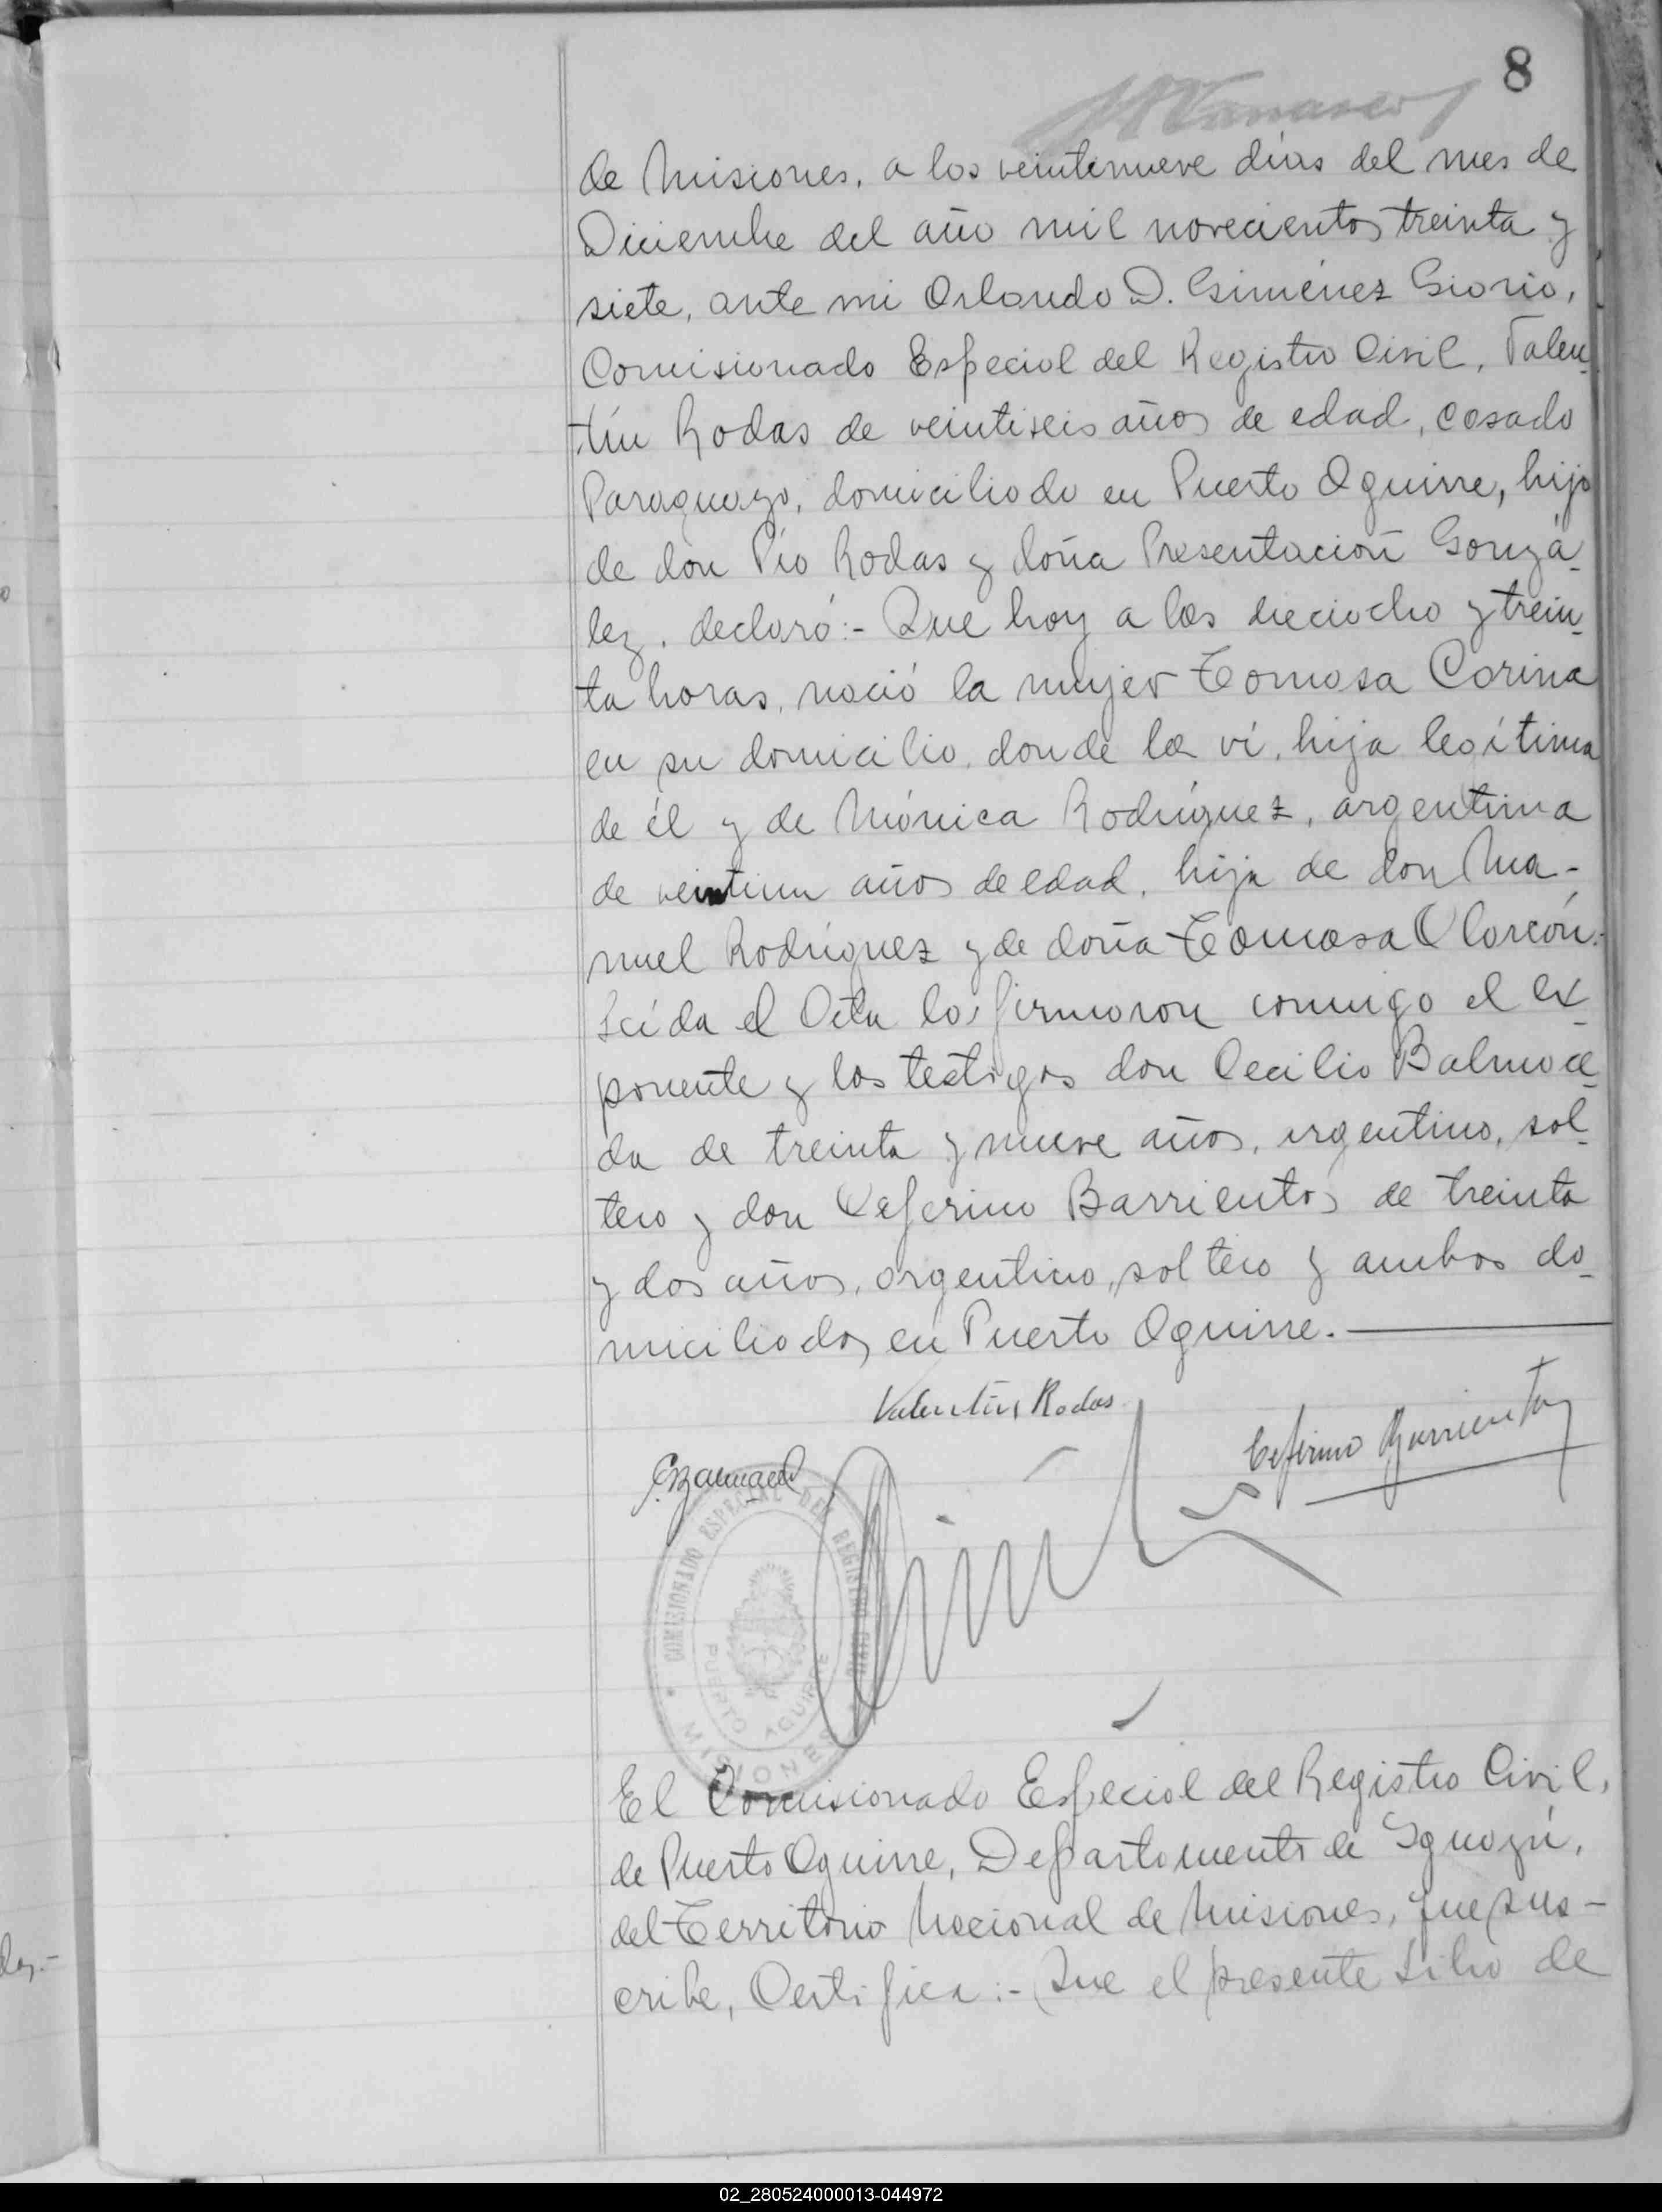 8
de Misiones, a los veintenueve días del mes de
Diciembre del año mil novecientos treinta y
siete, ante mi Orlando D. Giménez Giorio,
Comisionado Especial del Registro Civil, Valen-
tín Rodas de veintiseis años de edad, casado
Paraguayo, domiciliado en Puerto Aguirre, hijo
de don Pío Rodas y doña Presentación Gonzá-
lez, declaró:- Que hoy a las dieciocho y trein-
ta horas, nació la mujer Tomasa Corina
en su domicilio, donde la ví, hija legítima
de él y de Mónica Rodríguez, argentina
de veintiun años de edad, hija de don Ma-
nuel Rodríguez y de doña Tomasa Alarcón.-
Leída el Acta la firmaron conmigo el ex-
ponente y los testigos don Cecilio Balmace-
da de treinta y nueve años, argentino, sol-
tero y don Ceferino Barrientos de treinta
y dos años, argentino, soltero y ambos do-
miciliados en Puerto Aguirre.
Valentín Rodas
Ceferino Barrientos
COMISIONADO ESPECIAL DEL REGISTRO CIVIL
PUERTO AGUIRRE
MISIONES
El Comisionado Especial del Registro Civil,
de Puerto Aguirre, Departamento de Iguazú,
del Territorio Nacional de Misiones, que sus-
cribe, Certifica:- Que el presente Libro de
02_280524000013-044972